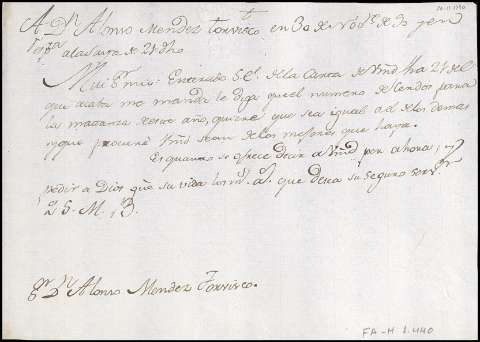 A Dn. Alonso Mendez Torvisco en 30 de Nove. de 30 y en
respta. a la suya de 21 dho
Mui Sr. mio: Enterado S.E. de la Carta de Vmd ha 21 del
que acaba me manda le diga que el numero de Cerdos para
la matanza de este año, quiere que sea igual al de los demas
y que procure Vmd sean de los mejores que haya.
Es quanto se ofrece decir a Vmd por ahora, y
pedir a Dios que su vida ms. as. que desea su seguro servr.
Q.S.M.B.
Sr. Dn. Alonso Mendez Torvisco.
FA-M 1.440